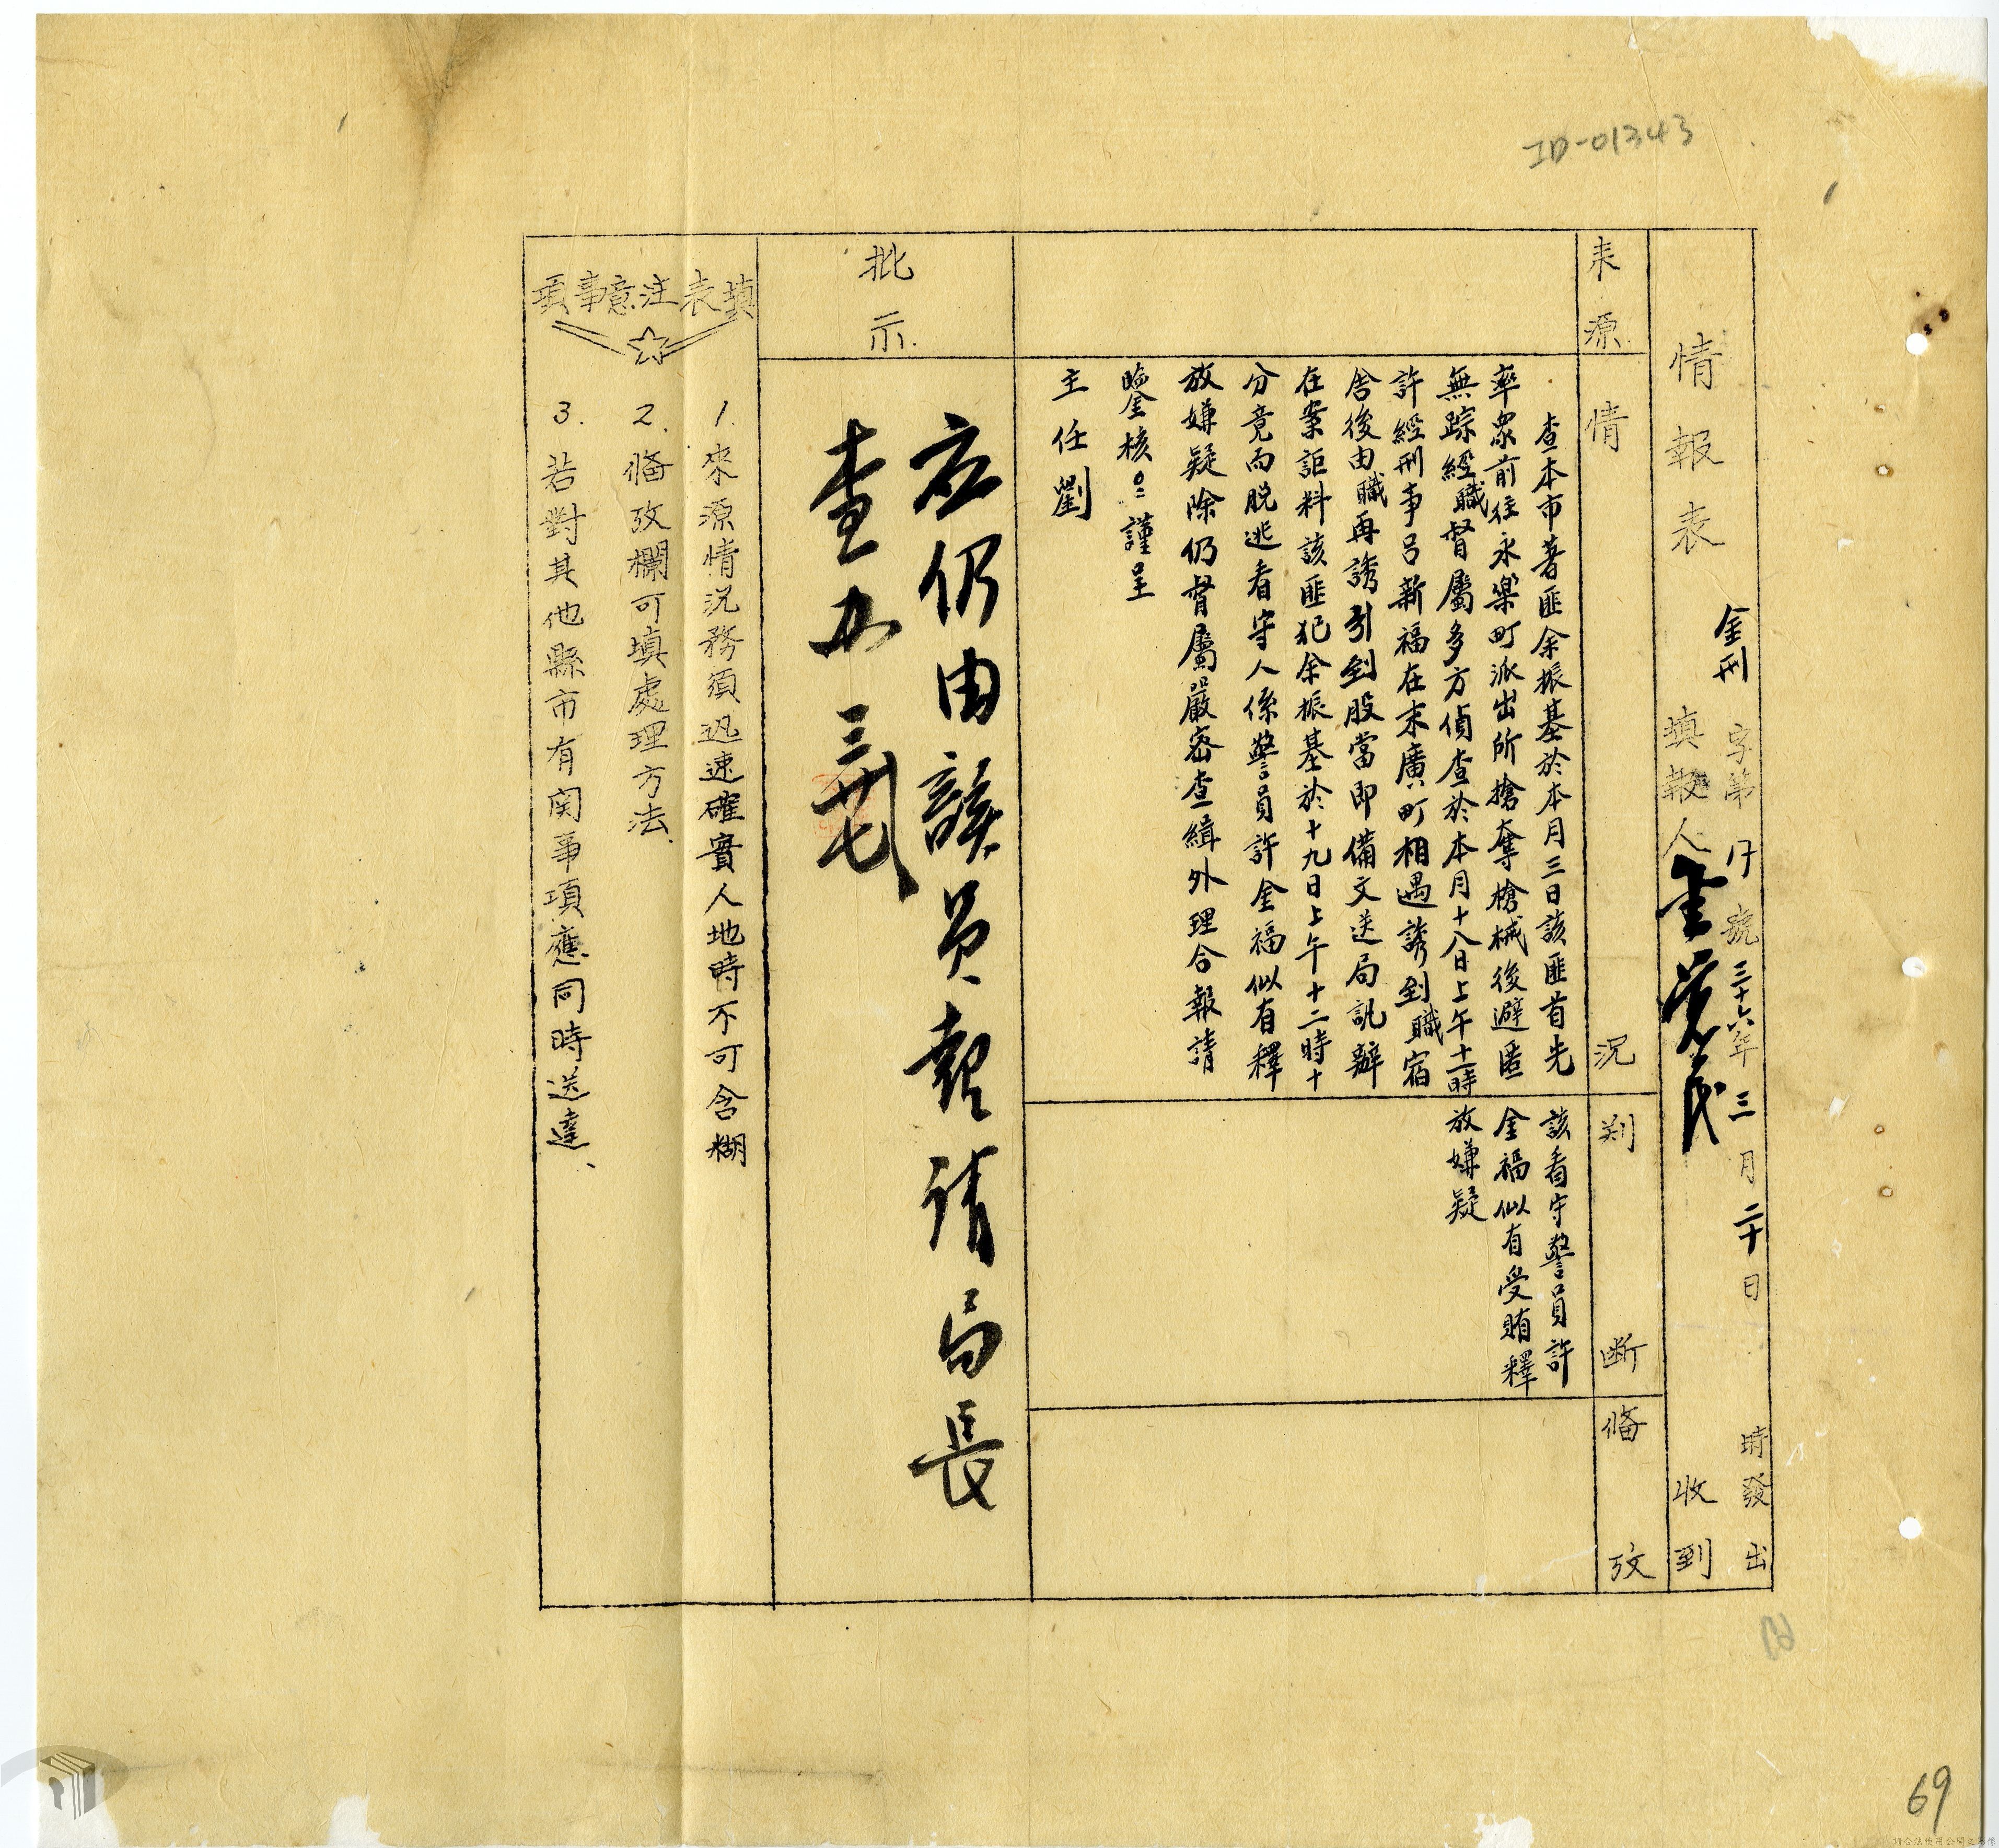 ID-01343
情報表
金刑字第 17 號 三十六年三月二十日 時發出
填報人
收到
来源
情況
判断
俻攷
查本市著匪余振基於本月三日該匪首先
率眾前往永樂町派出所搶奪槍械後避匿
無踪經職督屬多方偵查於本月十八日上午十一時
許經刑事呂新福在末廣町相遇誘到職宿
舍後由職再誘引到股當即備文送局訊辦
在案詎料該匪犯余振基於十九日上午十二時十
分竟而脱逃看守人係警員許金福似有釋
放嫌疑除仍督屬嚴密查緝外理合報請
鑒核 謹呈
主任劉
該看守警員許
金福似有受賄釋
放嫌疑
批示
应仍由該員報请局長
查办 三廿七
填表注意事項
1. 來源情況務須迅速確實人地時不可含糊
2. 俻攷欄可填處理方法.
3. 若對其他縣市有関事項應同時送達、
69
請合法使用公開之影像